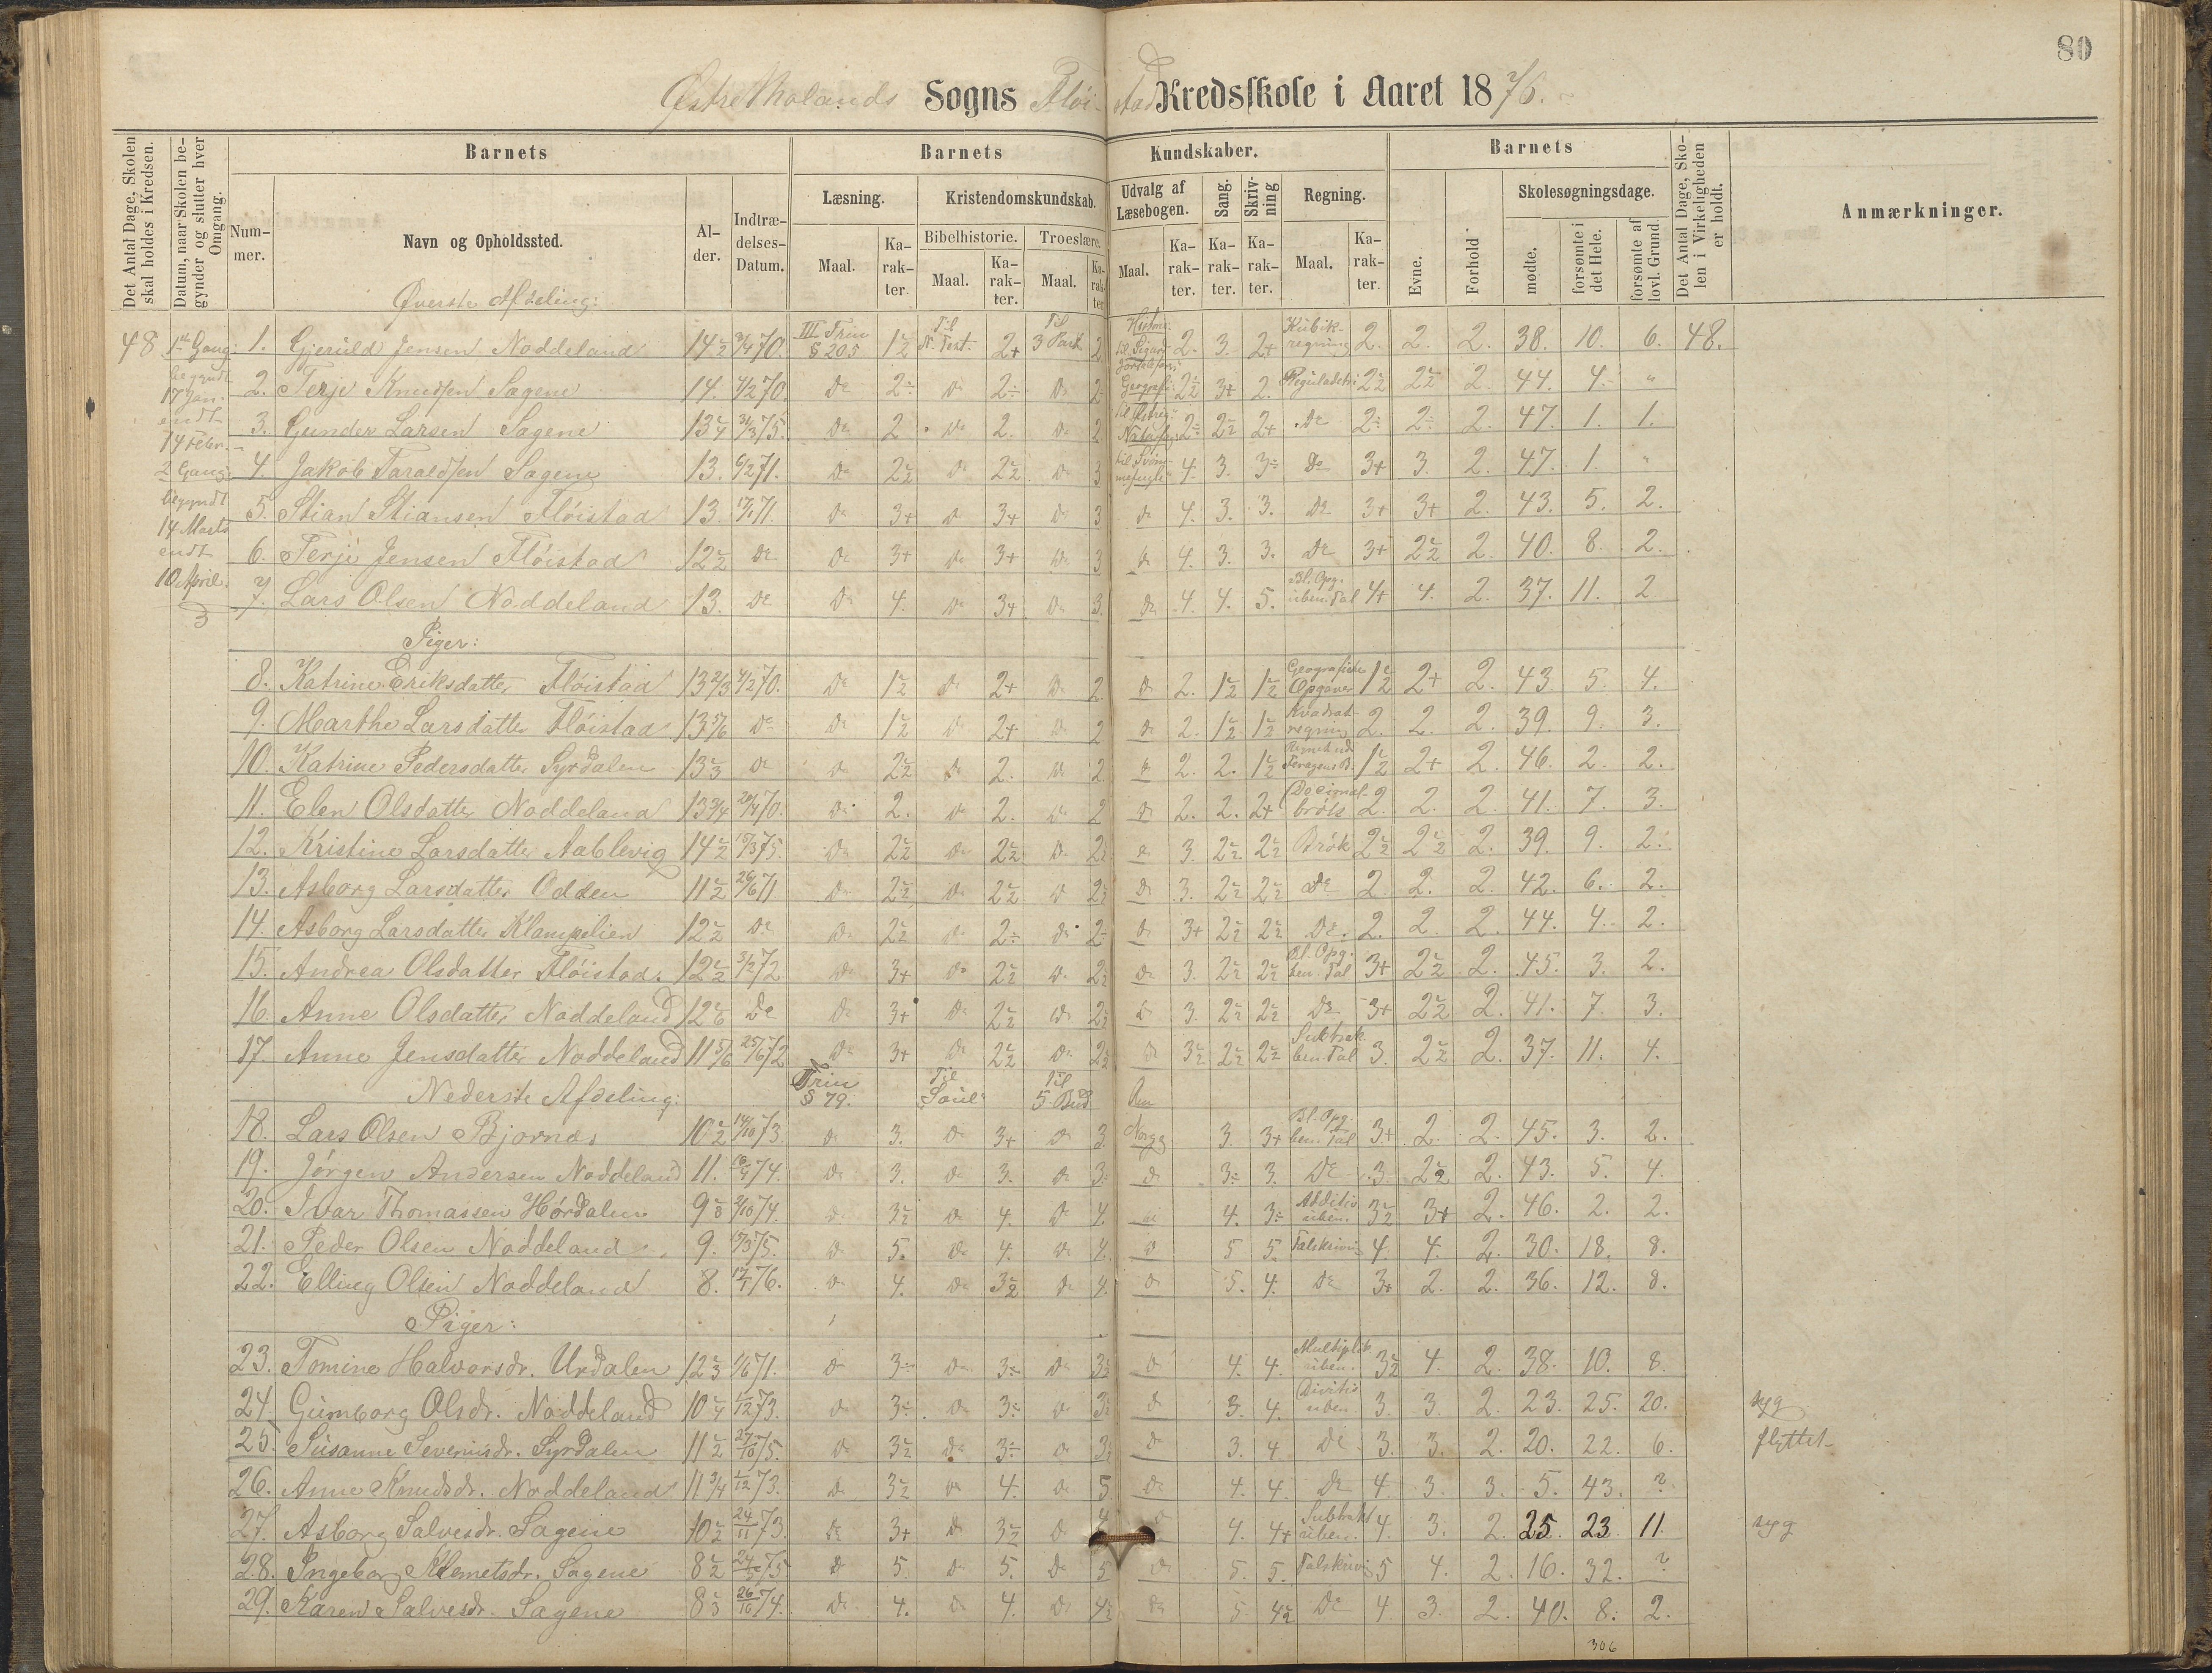 80
Østre Molands Sogns Flöistad Kredsskole i Aaret 1876.
Det Antal Dage, Skolen skal holdes i Kredsen.
Datum, naar Skolen begynder og slutter hver Omgang.
Barnets
Nummer.
Navn og Opholdssted.
Alder.
Indtrædelses-Datum.
Barnets Kundskaber.
Læsning.
Maal.
Karakter.
Kristendomskundskab.
Bibelhistorie.
Maal.
Karakter.
Troeslære.
Maal.
Karakter
Udvalg af Læsebogen.
Maal.
Karakter.
Sang.
Karakter.
Skrivning
Karakter.
Regning.
Maal.
Karakter
Barnets
Evne.
Forhold
Skolesøgningsdage.
mødte.
forsømte i det Hele.
forsømte af lovl. Grund
Det Antal Dage, Skolen i Virkeligheden er holdt.
Anmærkninger.
Øverste Afdeling:
48
1ste Gang
begyndt
17 Jan.
endt
14 Febr.
2 Gang
begyndt
14 Marts
endt
10 April.
1. Gjeruld Jensen Noddeland 14½ 70. III Trin § 205 1½ Til N. Test. 2+ Til 3 Part 2 2. 3. 2+ Kubikregning 2. 2. 2. 38. 10. 6. 48.
2. Terje Knudsen Sagene 14. 4/2 70. Do 2÷ Do 2÷ Do 2÷ 2½ 3+ 2. Reguladetri 2½ 2½ 2. 44. 4. "
3. Gunder Larsen Sagene 13¼ 75. Do 2 Do 2. Do 2 2÷ 2½ 2+ Do 2÷ 2÷ 2. 47. 1. 1.
4. Jakob Taraldsen Sagene 13. 6/2 71. Do 2½ Do 2½ Do 3 4. 3. 3÷ Do 3+ 3. 2. 47. 1. "
5. Stian Stiansen Flöistad 13. 71. Do 3+ Do 3+ Do 3 Do 4. 3. 3. Do 3+ 3+ 2. 43. 5. 2.
6. Terje Jensen Flöistad 12½ Do Do 3+ Do 3+ Do 3 Do 4. 3. 3. Do 3+ 2½ 2. 40. 8. 2.
7. Lars Olsen Noddeland 13. Do Do 4. Do 3+ Do 3. Do 4. 4. 5. Bl. Opg. uben. Tal 4+ 4. 2. 37. 11. 2
Piger:
8. Katrine Eriksdatter Flöistad 13⅔ 4/2 70. Do 1½ Do 2+ Do 2 Do 2. 1½ 1½ Geografiske Opgaver 1½ 2+ 2. 43. 5. 4.
9. Marthe Larsdatter Flöistad 13 5/6 Do Do 1½ Do 2+ Do 2 Do 2. 1½ 1½ Kvadratregning 2. 2. 2. 39. 9. 3.
10. Katrine Pedersdatter Syrdalen 13⅓ Do Do 2½ Do 2. Do 2. Do 2. 2. 1½ 1½ 2+ 2. 46. 2. 2.
11. Elen Olsdatter Noddeland 13¾ 70. Do 2. Do 2. Do 2 Do 2. 2. 2+ Decimalbrök 2. 2. 2. 41. 7. 3.
12. Kristine Larsdatter Aablevig 14½ 15/3 75. Do 2½ Do 2½ Do 2½ Do 3. 2½ 2½ Brök 2½ 2½ 2. 39. 9. 2.
13. Asborg Larsdatter Odden 11½ 26/6 71 Do 2½ Do 2½ Do 2½ Do 3. 2½ 2½ Do 2. 2. 2. 42. 6. 2.
14. Asborg Larsdatter Klampelien 12½ Do Do 2½ Do 2÷ Do 2÷ Do 3+ 2½ 2½ Do 2. 2. 2. 44. 4. 2.
15. Andrea Olsdatter Flöistad. 12½ 72 Do 3+ Do 2½ Do 2½ Do 3. 2½ 2½ Bl. Opg. ben. Tal 3+ 2½ 2. 45. 3. 2.
16. Anne Olsdatter Noddeland 12 1/6 Do Do 3+ Do 2½ Do 2½ Do 3. 2½ 2½ Do 3+ 2½ 2. 41. 7. 3.
17. Anne Jensdatter Noddeland 11 5/6 25/6 72 Do 3+ Do 2½ Do 2½ Do 3½ 2½ 2½ Subtrak. ben. Tal 3. 2½ 2. 37. 11. 4.
Nederste Afdeling: Trin § 79. Til "Saul" Til 5. Bud
18. Lars Olsen Bjornes 10½ 14/10 73. Do 3. Do 3+ Do 3 Norge 3. 3+ Bl. Opg. ben. Tal 3+ 2. 2. 45. 3. 2.
19. Jörgen Andersen Noddeland 11. 74. Do 3. Do 3. Do 3÷ Do 3÷ 3. Do 3. 2½ 2. 43. 5. 4.
20. Ivar Thomassen Hördalen 9 74. Do 3½ Do 4. Do 4. 4. 3÷ Additio uben. 3½ 3+ 2. 46. 2. 2.
21. Peder Olsen Noddeland 9. 15/3 75. Do 5. Do 4. Do 4. Do 5 5. Talskrivn 4. 4. 2. 30. 18. 8.
22. Elling Olsen Noddeland 8. 17/1 76. Do 4. Do 3½ Do 4. Do 5. 4. Do 3+ 2. 2. 36. 12. 8.
Piger:
23. Tomine Halvorsdr. Urdalen 12⅓ 71. Do 3÷ Do 3÷ Do 3½ Do 4. 4. Multiplik. uben. 3½ 4. 2. 38. 10. 8.
24 Gunborg Olsdr. Noddeland 10¼ 1/12 73. Do 3÷ Do 3÷ Do 3½ Do 3. 4. Divisio uben. 3. 3. 2. 23. 25. 20. syg
25. Susanne Severinsdr. Syrdalen 11½ 27/10 75. Do 3½ Do 3÷ Do 3½ Do 3. 4 Do 3. 3. 2. 20. 22. 6. flyttet
26. Anne Knudsdr. Noddeland 11¾ 1/12 73. Do 3½ Do 4. Do 5 Do 4. 4. Do 4. 3. 3. 5. 43. ?
27. Asborg Salvesdr. Sagene 10½ 24/11 73. Do 3+ Do 3½ Do 4 Do 4. 4+ Subtrakt uben. 4. 3. 2. 25. 23 11. syg
28. Ingeborg Klemetsdr. Sagene 8½ 75. Do 5. Do 5. Do 5 Do 5. 5. Talskrivn 5 4. 2. 16. 32. ?
29. Karen Salvesdr. Sagene 8⅓ 26/10 74. Do 4. Do 4. Do 4½ Do 5. 4½ Do 4 3. 2. 40. 8. 2.
306